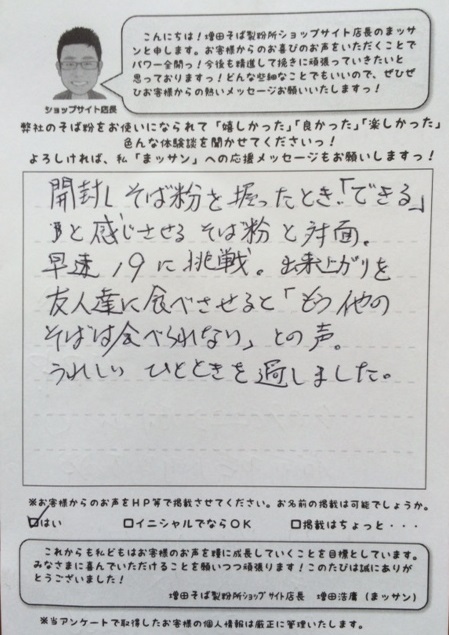 こんにちは！増田そば製粉所ショップサイト店長のまッサ
ンと申します。お客様からのお喜びのお声をいただくことで
パワー全開っ！今後も精進して挽きに頑張っていきたいと
思っておりますっ！どんな些細なことでもいいので、ぜひぜ
ひお客様からの熱いメッセージお願いいたしますっ！
ショップサイト店長
弊社のそば粉をお使いになられて「嬉しかった」「良かった」「楽しかった」
色んな体験談を聞かせてくださいっ！
よろしければ、私「まッサン」への応援メッセージもお願いしますっ！
開封しそば粉を握ったとき、「できる」
と感じさせるそば粉と対面。
早速19に挑戦。出来上がりを
友人達に食べさせると「もう他の
そばは食べられない」との声。
うれしい ひとときを過しました。
※お客様からのお声をＨＰ等で掲載させてください。お名前の掲載は可能でしょうか。
はい □イニシャルでならＯＫ □掲載はちょっと・・・
これからも私どもはお客様のお声を糧に成長していくことを目標としています。
みなさまに喜んでいただけることを願いつつ頑張ります！このたびは誠にありが
とうございました！
増田そば製粉所ショップサイト店長 増田浩庸（まッサン）
※当アンケートで取得したお客様の個人情報は厳正に管理いたします。